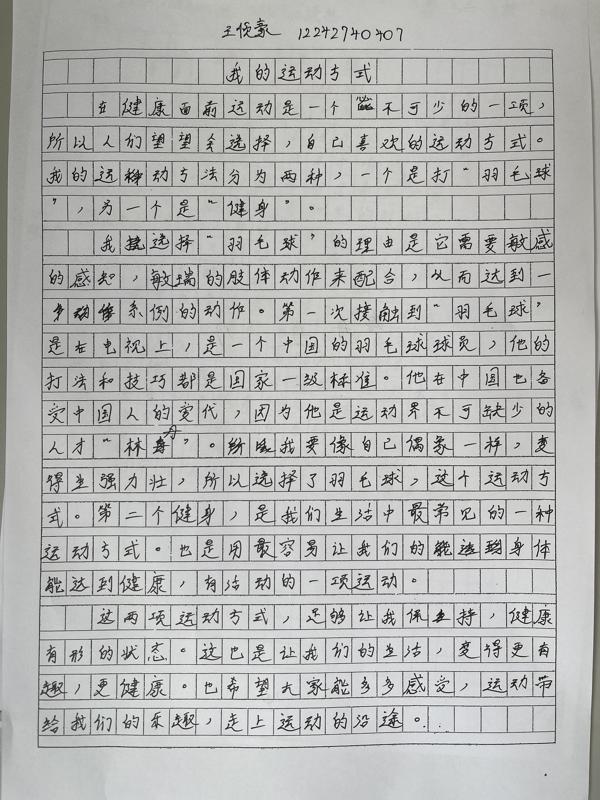 王悦豪 12242740407
我的运动方式
在健康面前运动是一个不可少的一项，
所以人们望望会选择，自己喜欢的运动方式。
我的运动方法分为两种，一个是打“羽毛球
”，另一个是“健身”。
我选择“羽毛球”的理由是它需要敏感
的感知，敏瑞的肢体动作来配合，从而达到一
系例的动作。第一次接触到“羽毛球”
是在电视上，是一个中国的羽毛球球员，他的
打法和技巧都是国家一级标准。他在中国也备
受中国人的爱代，因为他是运动界不可缺少的
人才“林丹”。我要像自己偶象一样，变
得生强力壮，所以选择了羽毛球，这个运动方
式。第二个健身，是我们生活中最常见的一种
运动方式。也是用最容易让我们的身体
能达到健康，有活动的一项运动。
这两项运动方式，足够让我保持，健康
有形的状态。这也是让我们的生活，变得更有
趣，更健康。也希望大家能多多感受，运动带
给我们的乐趣，走上运动的沿途。